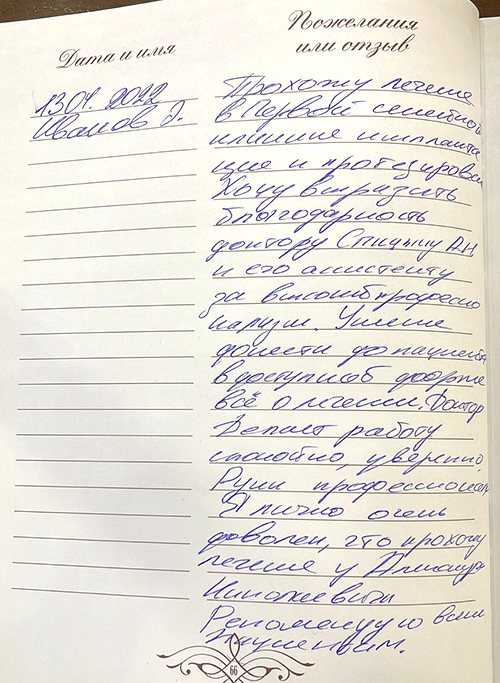 Дата и имя
Пожелания
или отзыв
13.04. 2022
Иванов Г.
Прохожу лечение
в Первой семейной
клинике имплантации
цие и протезирован
Хочу выразить
благодарность
доктору Спицыну А.Н.
и его ассистенту
за высокий профессио
нализм. Умение
донести до пациента
в доступной форме
всё о лечении. Доктор
делает работу
спокойно, уверенно.
Руки профессионала
Я лично очень
доволен, что прохожу
лечение у Александра
Николаевича
Рекомендую всем
пациентам.
66